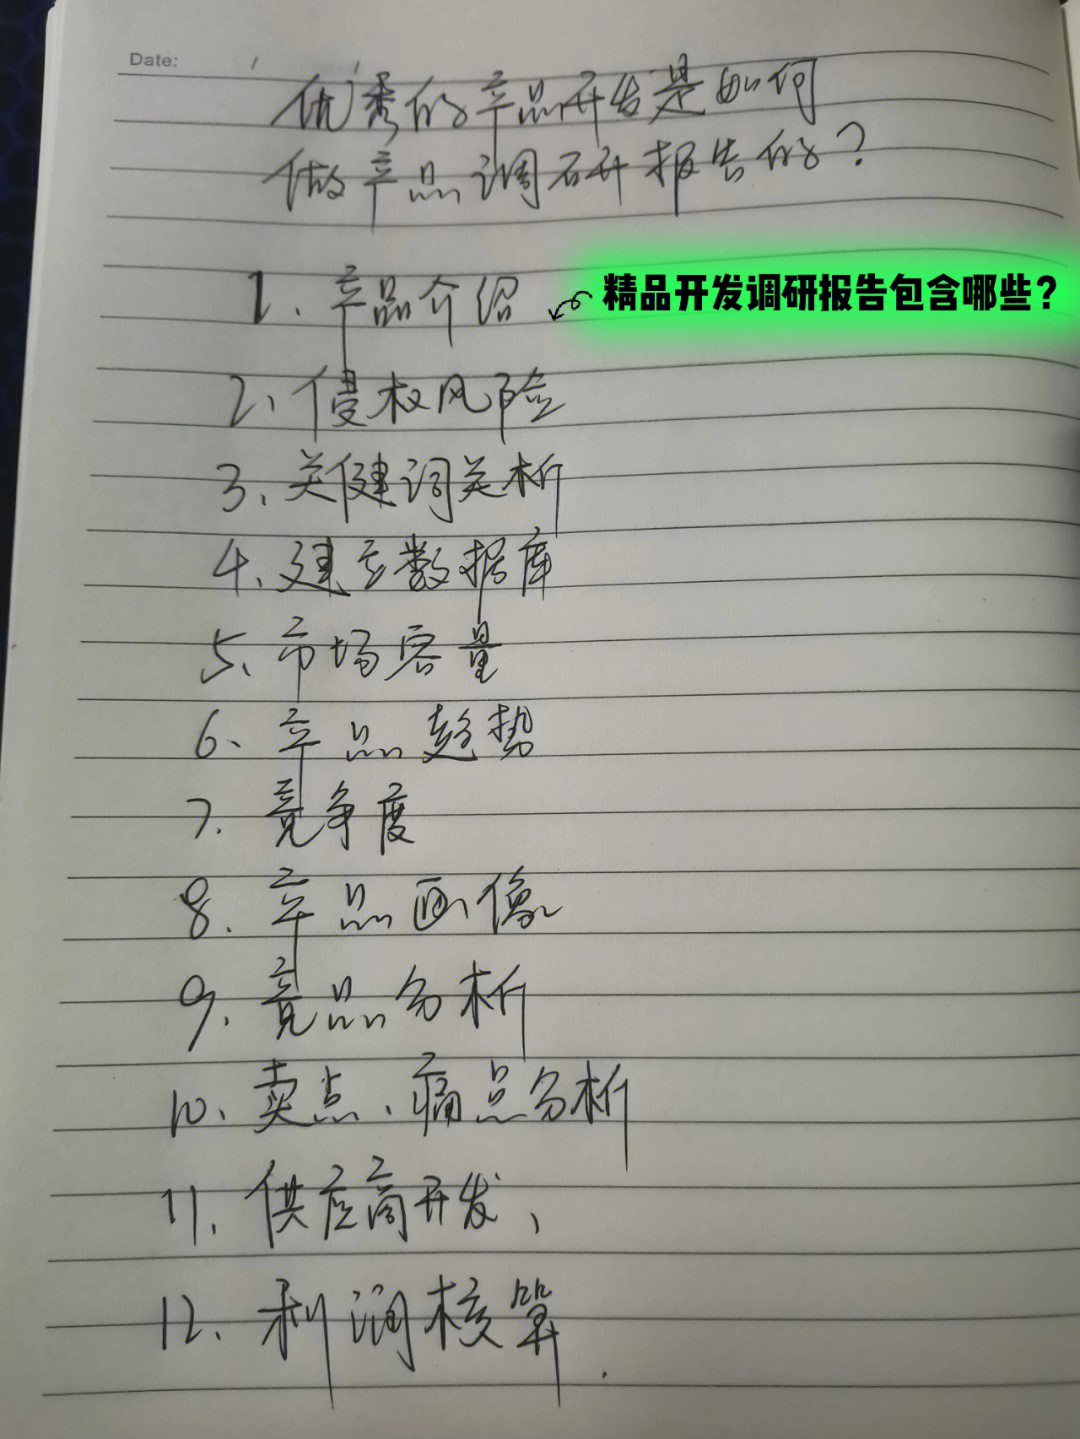 Date: / /
优秀的产品开发是如何
做产品调研报告的？
1、产品介绍
精品开发调研报告包含哪些？
2、侵权风险
3、关健词关析
4、建立数据库
5、市场容量
6、产品趋势
7、竞争度
8、产品画像
9、竞品分析
10、卖点、痛点分析
11、供应商开发、
12、利润核算.